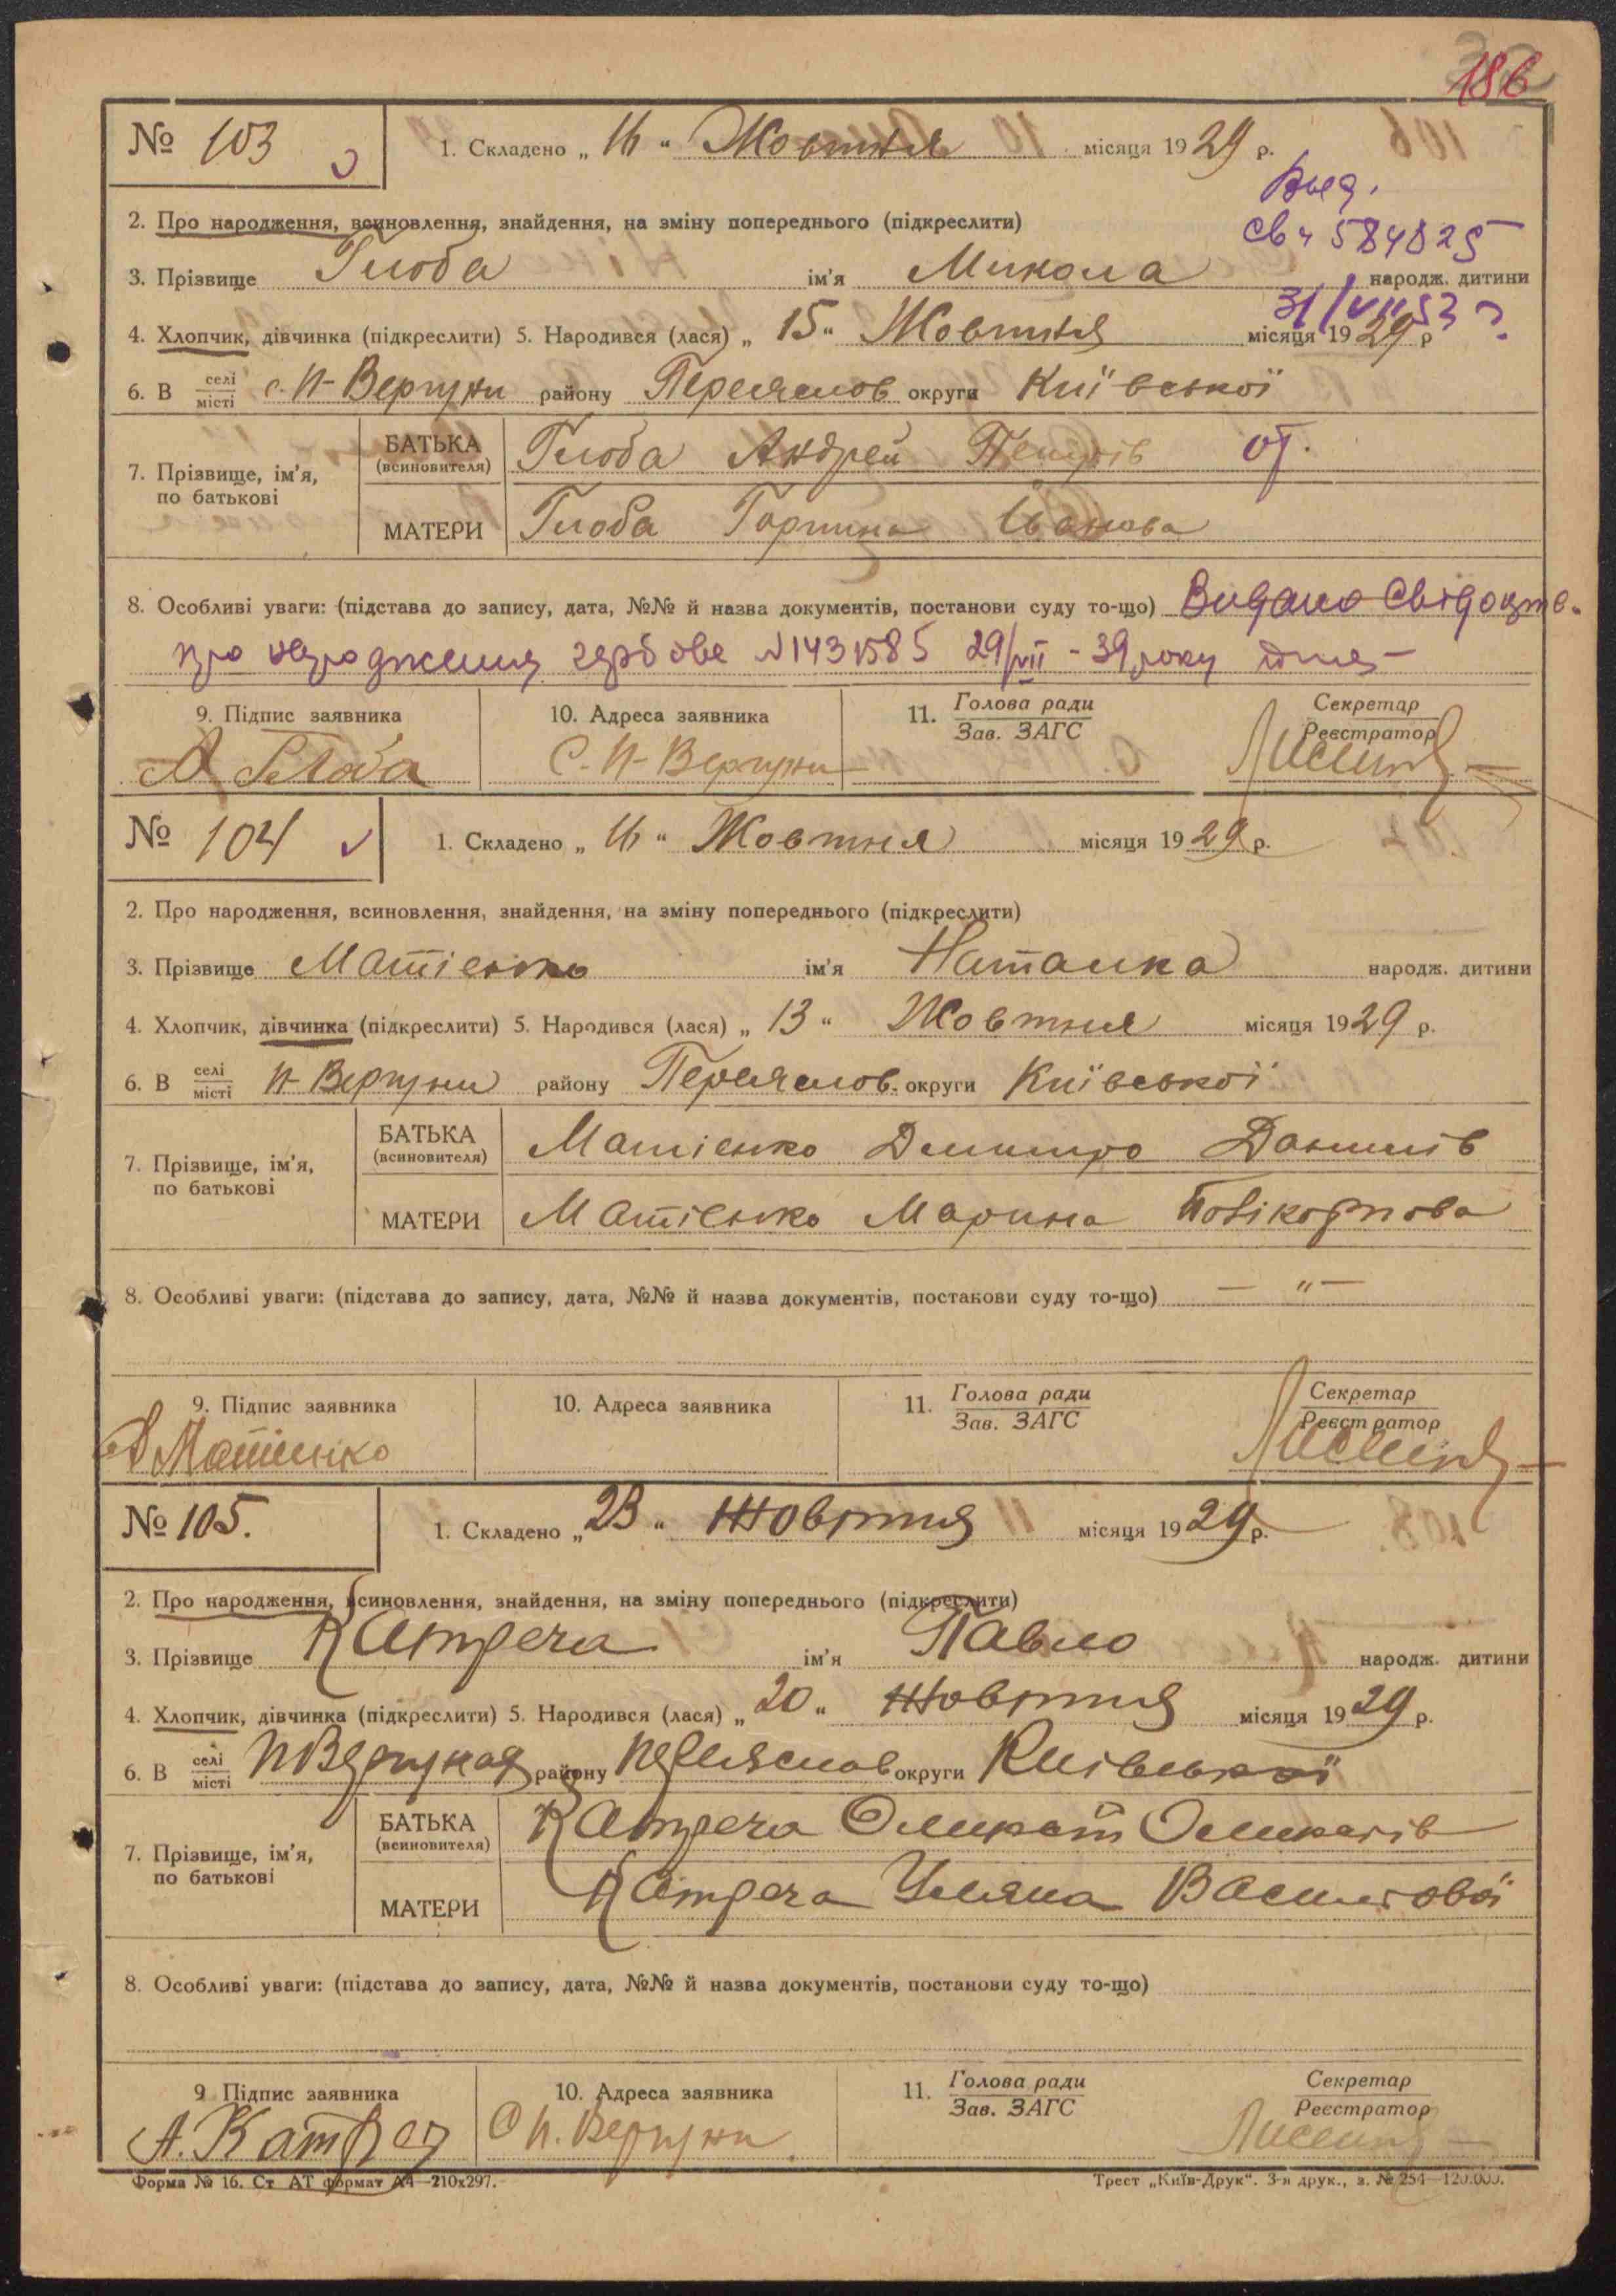 186
№ 103 1. Складено „ 16 " Жовтня місяця 1929 р.
Выд.
2. Про народження, всиновлення, знайдення, на зміну попереднього (підкреслити)
Св ч 584825
3. Прізвище Глоба ім'я Микола народж. дитини
4. Хлопчик, дівчинка (підкреслити) 5. Народився (лася) „ 15 " Жовтня місяця 1929 р
6. В селі місті с. Н-Вергуни району Переяслов округи Київської
БАТЬКА (всиновителя) Глоба Андрей
7. Прізвище, ім'я, по батькові
МАТЕРИ Глоба Горпина Іванова
8. Особливі уваги: (підстава до запису, дата, №№ й назва документів, постанови суду то-що) Видано Свідоцтв.
про народження гербове №1431585 29/VII - 39 року
9. Підпис заявника 10. Адреса заявника 11. Голова ради Зав. ЗАГС Секретар Реєстратор
А Глоба С. Н-Вергуни
№ 104 1. Складено „ 16 " Жовтня місяця 1929 р.
2. Про народження, всиновлення, знайдення, на зміну попереднього (підкреслити)
3. Прізвище Матієнко ім'я Наталка народж. дитини
4. Хлопчик, дівчинка (підкреслити) 5. Народився (лася) „ 13 " Жовтня місяця 1929 р.
6. В селі місті Н-Вергуни району Переяслов. округи Київської
БАТЬКА (всиновителя) Матієнко Дмитро Данилів
7. Прізвище, ім'я, по батькові
МАТЕРИ Матієнко Марина
8. Особливі уваги: (підстава до запису, дата, №№ й назва документів, постанови суду то-що) — " —
9. Підпис заявника 10. Адреса заявника 11. Голова ради Зав. ЗАГС Секретар Реєстратор
Д Матіенко
№ 105. 1. Складено „ 23 " Жовтня місяця 1929 р.
2. Про народження, всиновлення, знайдення, на зміну попереднього (підкреслити)
3. Прізвище Катреча ім'я Павло народж. дитини
4. Хлопчик, дівчинка (підкреслити) 5. Народився (лася) „ 20 " Жовтня місяця 1929 р.
6. В селі місті району Переяслов округи Київської
БАТЬКА (всиновителя) Катреча
7. Прізвище, ім'я, по батькові
МАТЕРИ Катреча Уляна Василової
8. Особливі уваги: (підстава до запису, дата, №№ й назва документів, постанови суду то-що)
9 Підпис заявника 10. Адреса заявника 11. Голова ради Зав. ЗАГС Секретар Реєстратор
С Н. Вергуни
Форма № 16. Ст АТ формат А4—210х297. Трест „Київ-Друк". 3-я друк., з. № 254—120.000.